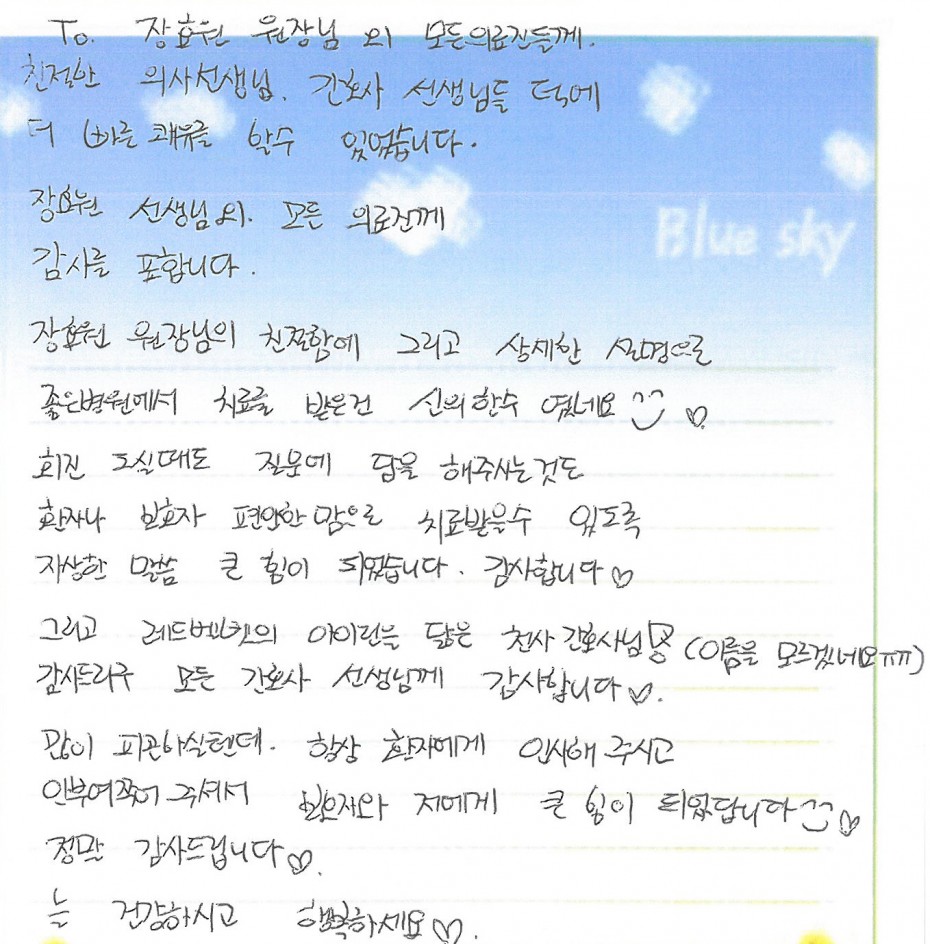 To. 장효원 원장님 외 모든의료진들께.
친절한 의사선생님. 간호사 선생님들 덕에
더 빠른 쾌유를 할수 있었습니다.
장효원 선생님 외. 모든 의료진께
감사를 표합니다.
Blue sky
장효원 원장님의 친절함에 그리고 상세한 설명으로
좋은병원에서 치료를 받은건 신의한수 였네요
회진 도실때도 질문에 답을 해주시는것도
환자나 보호자 편안한 맘으로 치료받을수 있도록
자상한 말씀 큰 힘이 되었습니다. 감사합니다
그리고 레드벨벳의 아이린을 닮은 천사 간호사님 (이름을 모르겠네요ㅠㅠ)
감사드리구 모든 간호사 선생님께 감사합니다.
많이 피곤하실텐데. 항상 환자에게 인사해 주시고
안부여쭈어 주셔서 보호자와 저에게 큰 힘이 되었답니다
정말 감사드립니다.
늘 건강하시고 행복하세요.